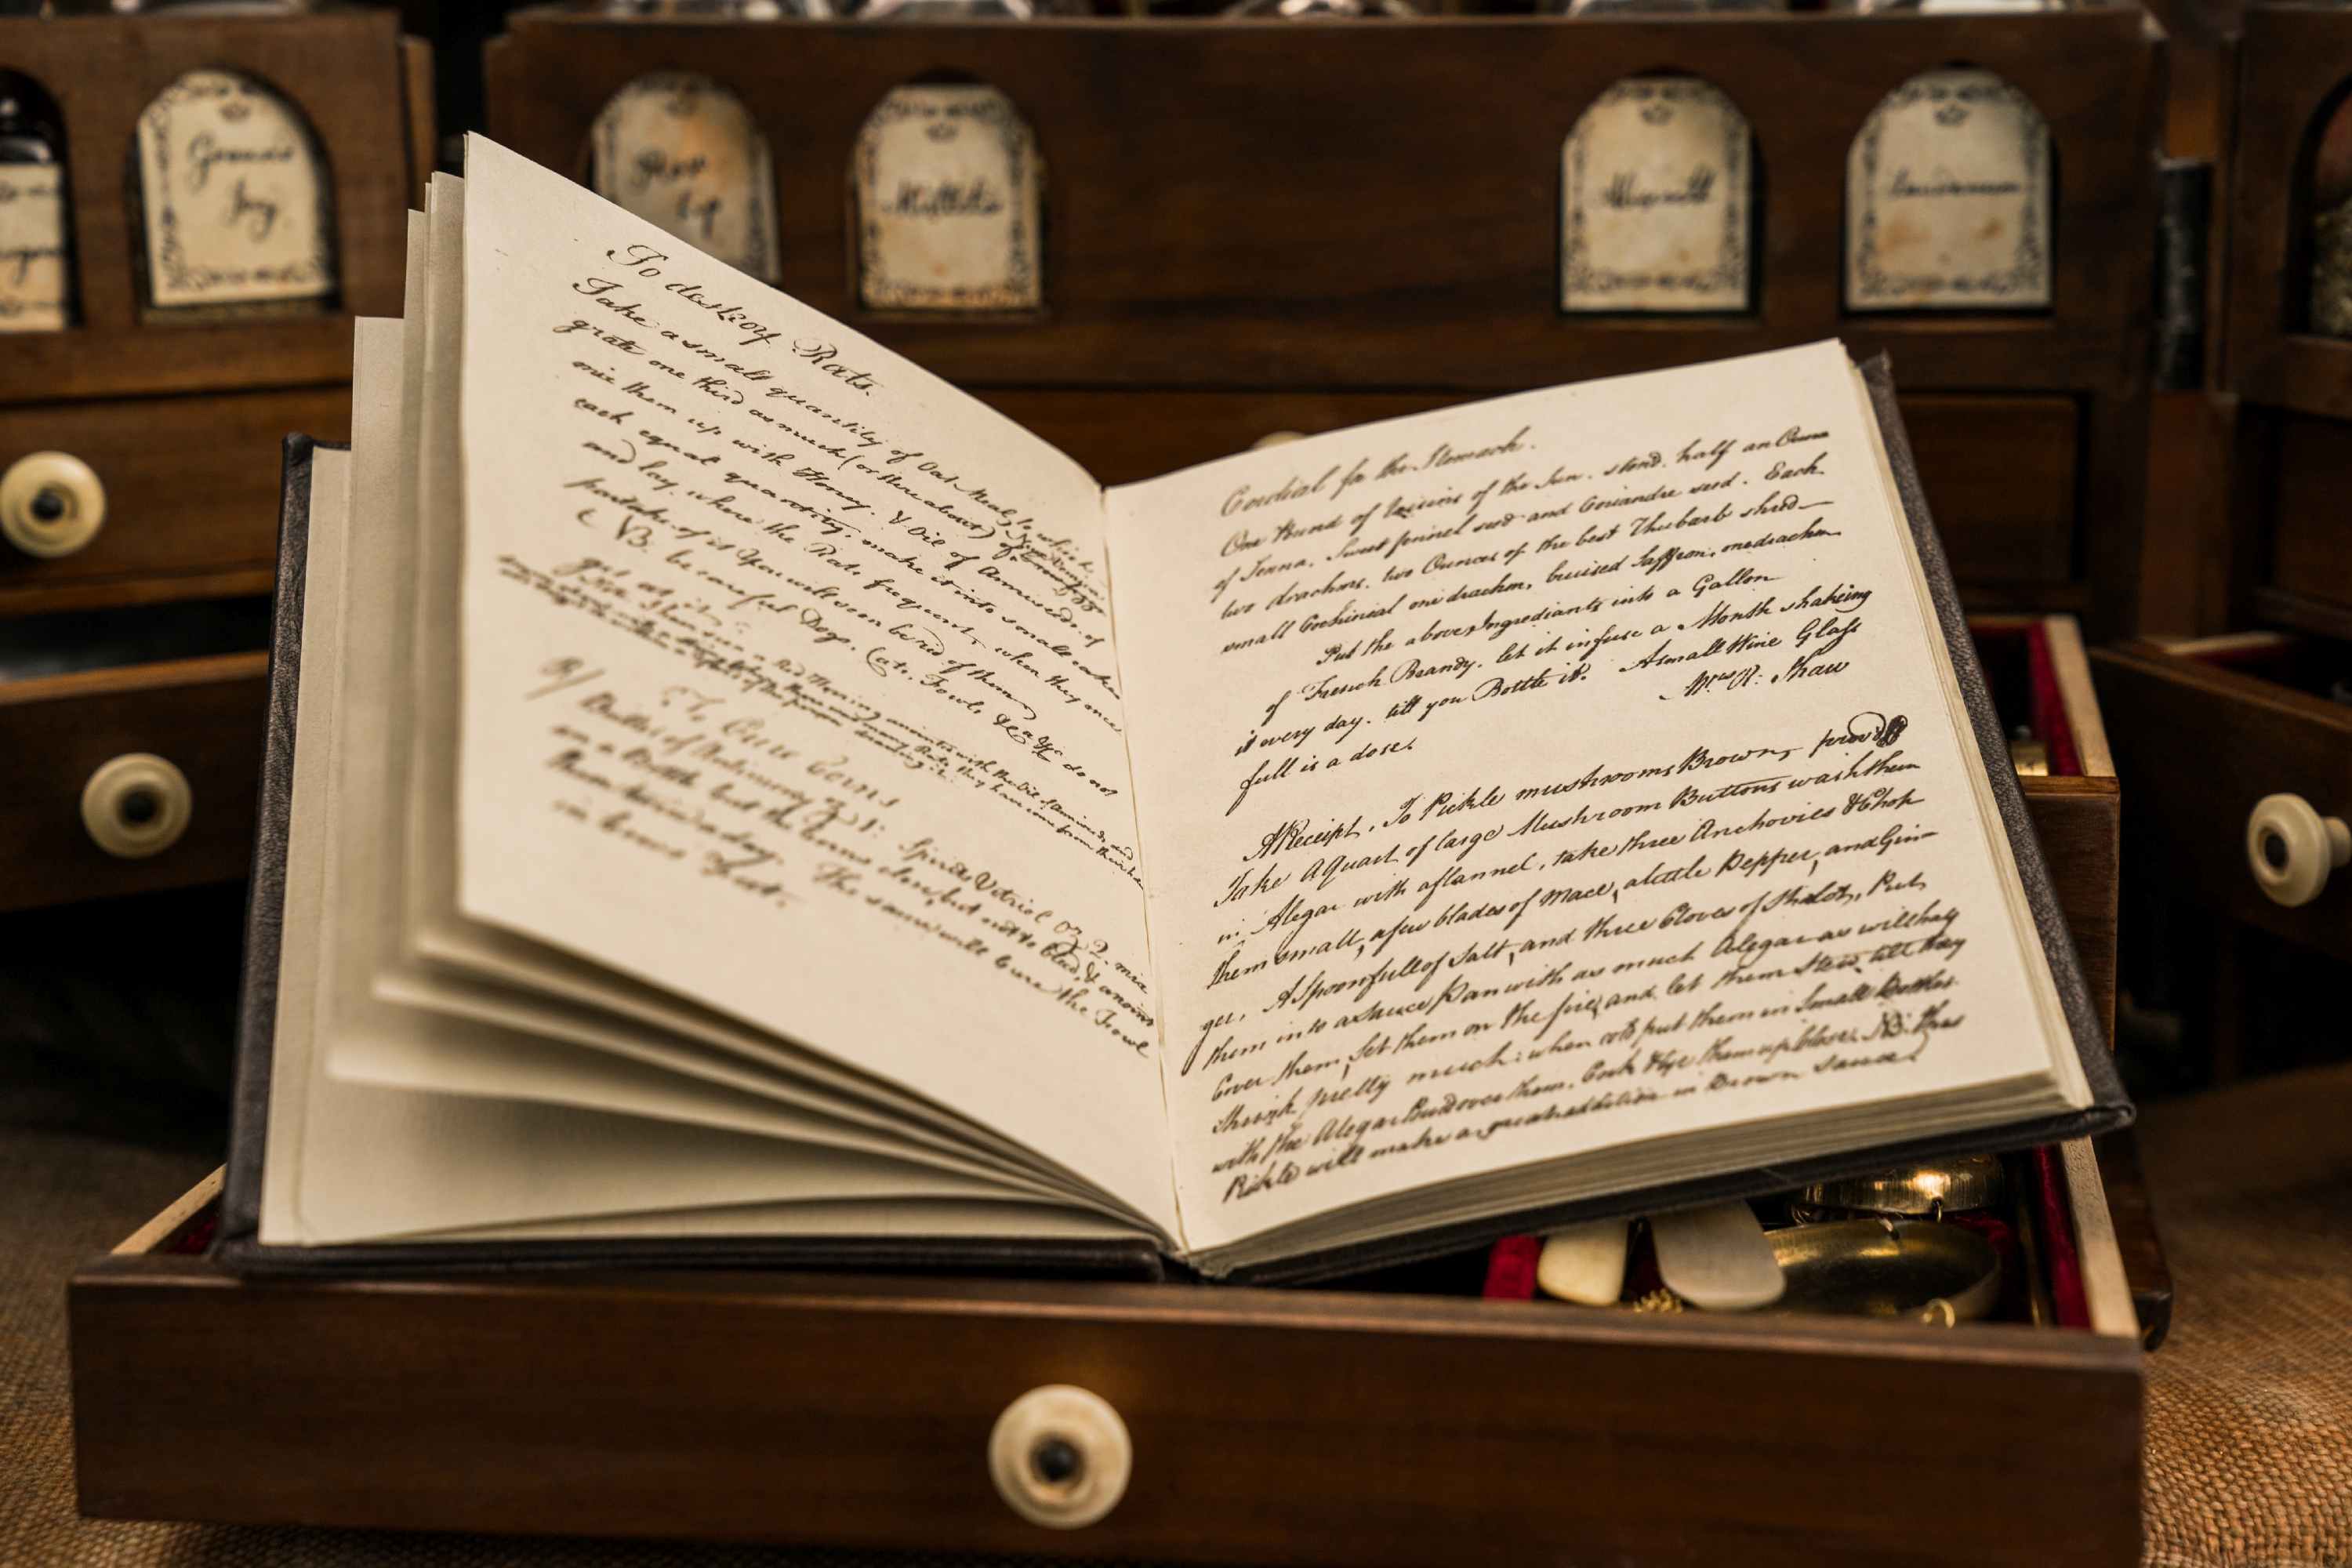 Ground
Ivy
Rose
hip
Mistletoe
Wormwood
Laudanum
To destroy Rats.
Take a small quantity of Oat Meal, to which
grate one third as much (or there about) of
mix them up with Honey. & Oil of Anniseeds. of
each equal quantity, make it into small cakes
and lay where the Rats frequent, when they once
partake of it You will soon be rid of them
NB. be careful Dogs. Cats. Fowls &c &c do not
get at it.
a Red Herring anointed with the Oil of Anniseeds, and
To Cure Corns
R/ Butter of Antimony oz 1: Spirits Vitriol oz 2. mix
in a Bottle but the Corns close, but not to bleed, & anoint
them twice a day. The same will Cure the Fowl
in Cows Feet.
Cordial for the Stomach.
One Pound of raisins of the Sun. stond. half an Ounce
of Senna. Sweet fennel seed and Coriander seed. Each
two drachms. two Ounces of the best Rhubarb shred
small Cochineal one drachm, bruised Saffron, one drachm
Put the above Ingrediants into a Gallon
of French Brandy. let it infuse a Month shakeing
it every day. till you Bottle it. A small Wine Glass
full is a dose. Mrs R: Shaw
A Receipt, To Pickle mushrooms Brown,
Take A Quart of large Mushroom Buttons wash them
in Alegar with a flannel, take three Anchovies & Chop
them small, a few blades of Mace, a little Pepper, and Gin
ger, A Spoonfull of Salt, and three Cloves of Shalots, Put
them into a Sauce Pan with as much Alegar as will half
Cover them, Set them on the fire, and let them Stew till they
Shrink pretty much: when cold put them in Small Bottles
with the Alegar Poured over them. Cork & tye them up Close. NB. this
Pickle will make a great addition in Brown Sauce.